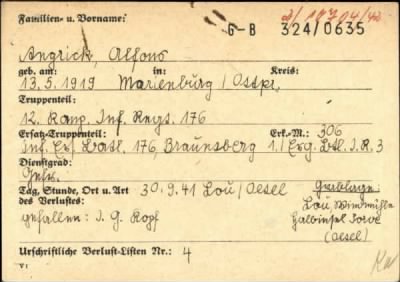 Familien- u. Vorname:
G-B 324/0635
Angrick, Alfons
geb. am: in: Kreis:
13.5.1919 Marienburg/Ostpr.
Truppenteil:
12. Komp. Inf. Regt. 176
Ersatz-Truppenteil: Erk.-M.: 306
Inf. Ers. Batl. 176, Braunsberg 1./Erg. Btl. I.R. 3
Dienstgrad:
Gefr.
Tag, Stunde, Ort u. Art 30.9.41 Lou/Oesel Grablage:
des Verlustes: Lou, Windmühle
gefallen: I. G. Kopf Halbinsel Sorve
(Oesel)
Urschriftliche Verlust-Listen Nr.: 4
VI